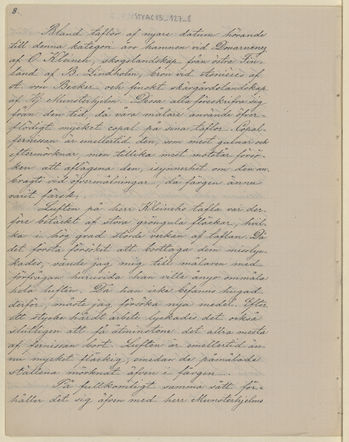 8.
Bland taflor af nyare datum hörande
till denna kategori äro hamnen vid Douarnenez
af O. Kleineh, skogslandskap från östra Fin-
land af B. Lindholm, bron vid
af von Becker, och finskt skärgårdslandskap
af Hj. Munsterhjelm. Dessa alla förskrifva sig
från den tid, då våra målare använde öfver-
flödigt mycket copal på sina taflor. Copal-
fernissan är emellertid den, som mest gulnar och
eftermörknar, men tillika mest motstår försö-
ken att aflägsna den, isynnerhet om den an-
bragts vid öfvermålningar, då färgen ännu
varit färsk.
Luften på herr Kleinehs tafla var der-
före betäckt af stora gröngula fläckar, hvil-
ka i hög grad störde verkan af taflan. Då
det första försöket att borttaga dem misslyc-
kades, vände jag mig till målaren med
förfrågan huruvida han ville ånyo öfvermåla
hela luften. Då han icke befanns hugad
derför, måste jag försöka nya medel. Efter
ett stycke hårdt arbete lyckades det också
slutligen att få åtminstone det allra mesta
af fernissan bort. Luften är emellertid än
nu mycket fläckig, emedan de påmålade
ställena mörknat äfven i färgen.
På fullkomligt samma sätt för-
håller det sig äfven med herr Munsterhjelms